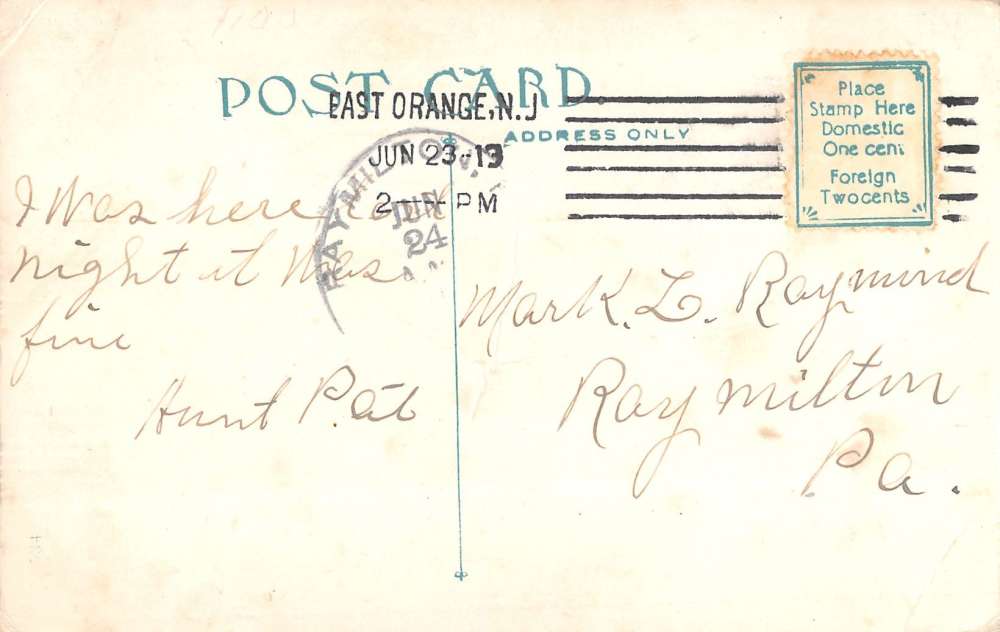 POST CARD
EAST ORANGE, N.J
ADDRESS ONLY
JUN 23-13
2 PM
RAYMILTON
JUN
24
Place
Stamp Here
Domestic
One cent
Foreign
Two cents
I Was here
night it Was
fine
Aunt Pat
Mark. L. Raymond
Raymilton
Pa.